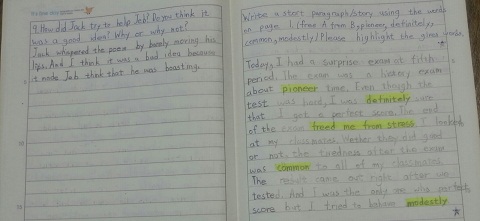 9. How did Jack try to help Jeb? Do you think it
was a good idea? Why or why not?
Jack whispered the poem by barely moving his
lips. And I think it was a bad idea because
it made Jeb think that he was boasting.
Write a short paragraph/story using the words
on page 1 (free A from B, pioneer, definitely,
common, modestly) Please highlight the given words.
Today, I had a surprise exam at fifth
period. The exam was a history exam
about pioneer time. Even though the
test was hard, I was definitely sure
that I got a perfect score. The end
of the exam freed me from stress. I looked
at my classmates. Whether they did good
or not, the tiredness after the exam
was common to all of my classmates.
The result came out right after we
tested. And I was the only one who
score but I tried to behave modestly